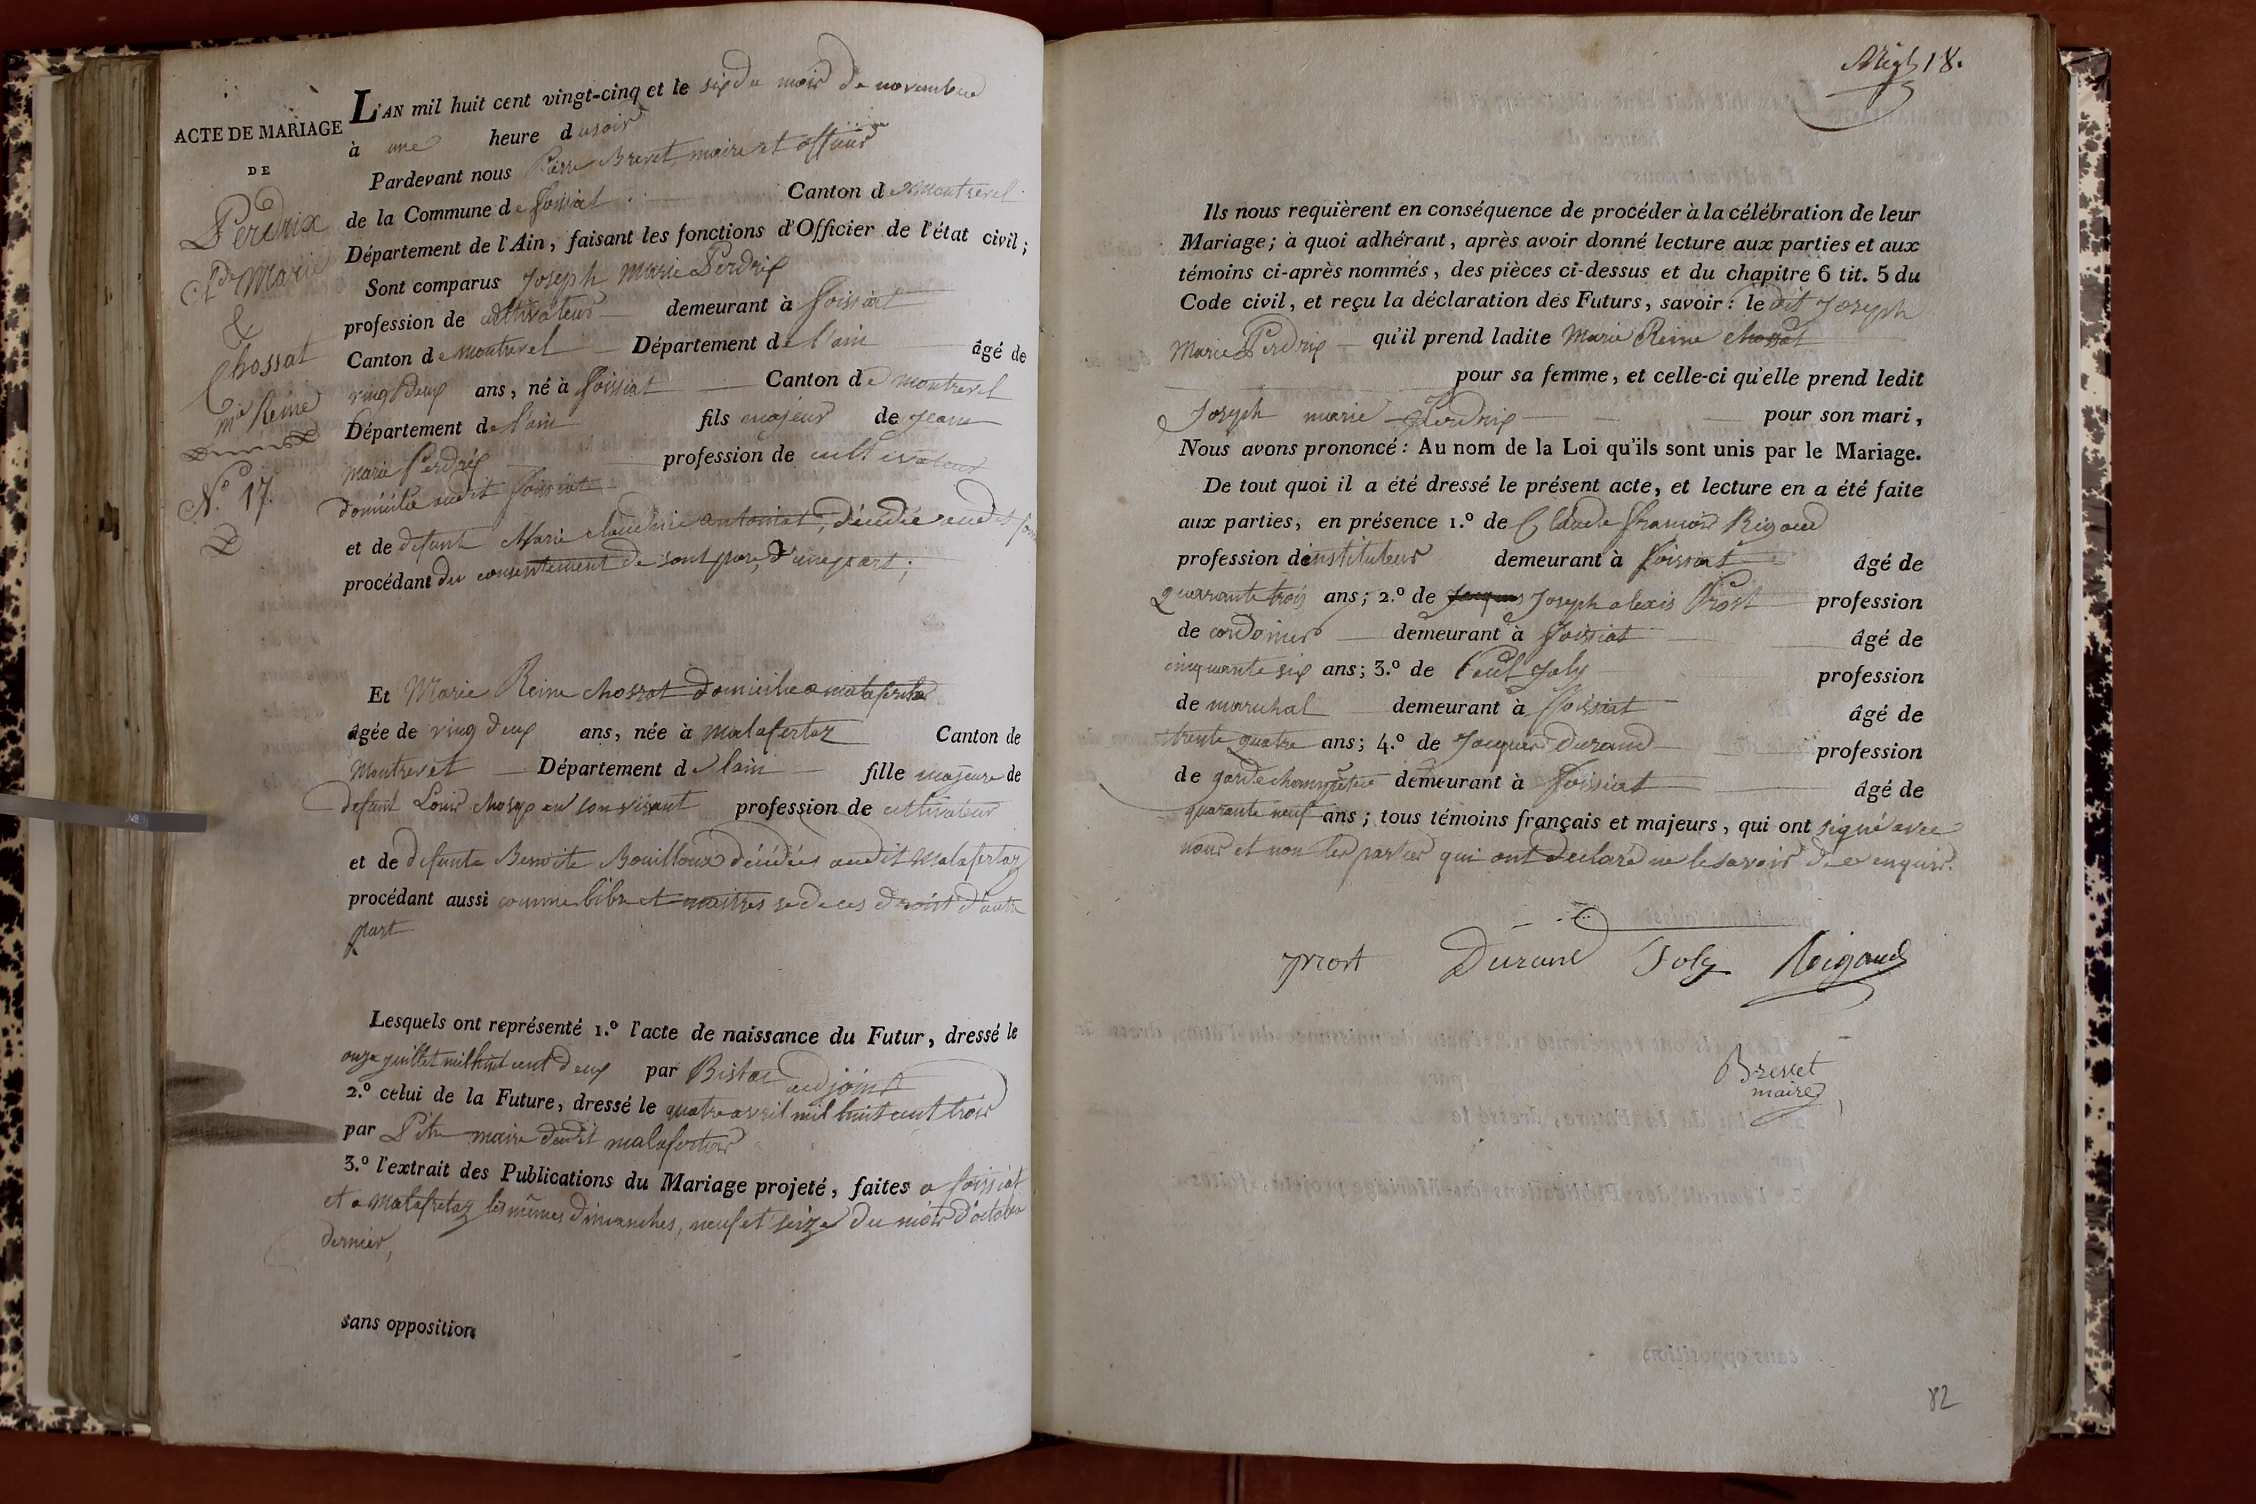 ACTE DE MARIAGE
DE
Perdrix
Jh Marie
&
Chossat
mie Reine
N.° 17.
L'AN mil huit cent vingt-cinq et le six du mois de novembre
à une heure du soir
Pardevant nous Pierre Brevet maire et officier
de la Commune de foissiat Canton de montrevel
Département de l'Ain, faisant les fonctions d'Officier de l'état civil;
Sont comparus Joseph Marie Perdrix
profession de cultivateur demeurant à foissiat
Canton de montrevel Département de l'ain âgé de
vingt deux ans, né à foissiat Canton de montrevel
Département de l'ain fils majeur de jean
marie Perdrix profession de cultivateur
domicilié audit foissiat
et de defunte Marie claudine antoinat, décédée audit
procédant du consentement de sont pere, d'une part;
Et Marie Reine chossat domiciliee a malafertaz
âgée de vingt deux ans, née à malafertaz Canton de
Montrevel Département de lain fille majeure de
defunt Louis chossat en son vivant profession de cultivateur
et de defunte Benoite Bouilloux décédés audit Malafertaz
procédant aussi comme libre et maitresse de ces droits d'autre
part
Lesquels ont représenté 1.° l'acte de naissance du Futur, dressé le
onze juillet mil huit cent deux par adjoint
2.° celui de la Future, dressé le quatre avril mil huit cent trois
par maire dudit malafertaz
3.° l'extrait des Publications du Mariage projeté, faites a foissiat
et a Malafretaz les mêmes dimanches, neuf et seize du mois d'octobre
dernier,
sans opposition
18.
Ils nous requièrent en conséquence de procéder à la célébration de leur
Mariage; à quoi adhérant, après avoir donné lecture aux parties et aux
témoins ci-après nommés, des pièces ci-dessus et du chapitre 6 tit. 5 du
Code civil, et reçu la déclaration des Futurs, savoir: le dit Joseph
Marie Perdrix qu'il prend ladite Marie Reine chossat
pour sa femme, et celle-ci qu'elle prend ledit
Joseph marie Perdrix pour son mari,
Nous avons prononcé: Au nom de la Loi qu'ils sont unis par le Mariage.
De tout quoi il a été dressé le présent acte, et lecture en a été faite
aux parties, en présence 1.° de Claude françois Rigaud
profession dinstituteur demeurant à foissiat âgé de
quarrante trois ans; 2.° de Jacques Joseph alexis Prost profession
de cordonier demeurant à foissiat âgé de
cinquante six ans; 3.° de Paul Joly profession
de marechal demeurant à foissiat âgé de
trente quatre ans; 4.° de Jacques Durand profession
de garde champêtre demeurant à foissiat âgé de
quarante neuf ans; tous témoins français et majeurs, qui ont signé avec
nous et non les parties qui ont declaré ne le savoir de ce enquis.
prost Durand Joly Rigaud
Brevet
maire
82